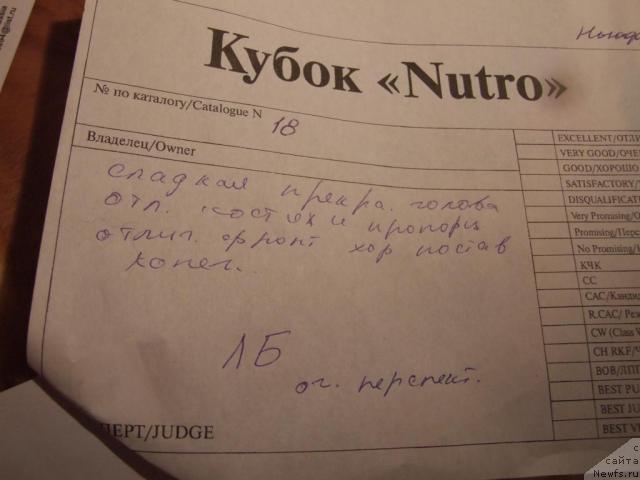 Ньюфа
Кубок «Nutro»
№ по каталогу/Catalogue N 18
Владелец/Owner
сладкая прекра. голова
отл. костяк и пропорц
отлич. фронт хор постав
конеч.
ЛБ
оч. перспект.
ПЕРТ/JUDGE
EXCELLENT/ОТЛИ
VERY GOOD/ОЧЕ
GOOD/ХОРОШО
SATISFACTORY/
DISQUALIFICAT
Very Promising/О
Promising/Перс
No Promising/Н
КЧК
CC
CAC/Канди
R.CAC/ Рез
CW (Class W
CH RKF/Ч
BOB/ЛПП
BEST PU
BEST JU
BEST VE
с
сайта
Newfs.ru